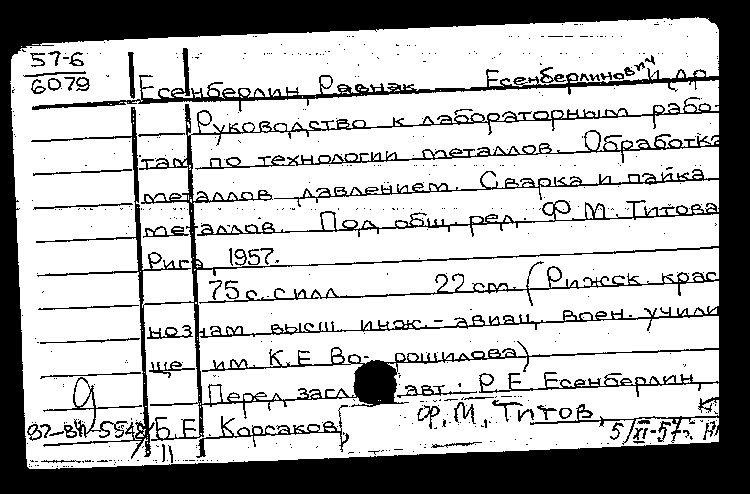 57-6
6079
Есенберлин, Равнак Есенберлинович и др.
Руководство к лабораторным рабо-
там по технологии металлов. Обработка
металлов давлением. Сварка и пайка
металлов. Под общ. ред. Ф.М. Титова
Рига, 1957.
75 с. с илл. 22 см. (Рижск. крас
нознам. высш. инж.-авиац. воен. учили
ще им. К.Е. Ворошилова)
Перед загл. авт.: Р.Е. Есенберлин,
Б.Е. Корсаков, Ф.М. Титов,
5/XI-57г.